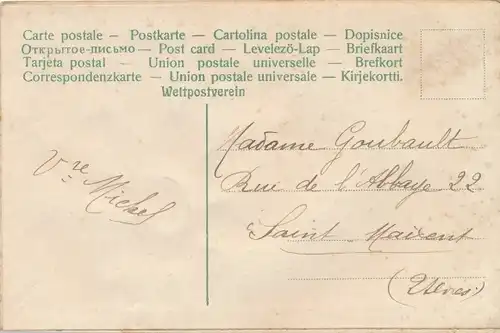 Carte postale – Postkarte – Cartolina postale – Dopisnice
Открытое-письмо – Post card – Levelező-Lap – Briefkaart
Tarjeta postal – Union postale universelle – Brefkort
Correspondenzkarte – Union postale universale – Kirjekortti.
Weltpostverein
Vre Michel
Madame Goubault
Rue de l'Abbaye 22
Saint Maixent